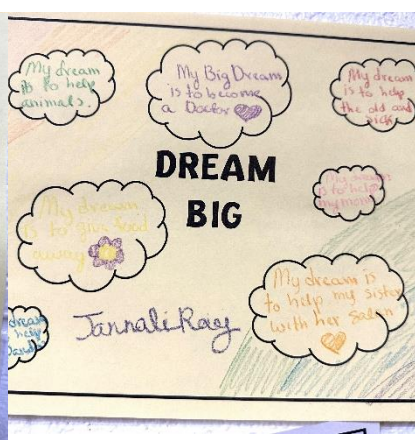 My dream
is to help
animals.
My Big Dream
is to become
a Doctor
My dream
is to help
the old and
sick
DREAM
BIG
My dream
is to help
my mom
My dream
is to give food
away
Jannali Ray
My dream is
to help my sister
with her Salon
dream
help